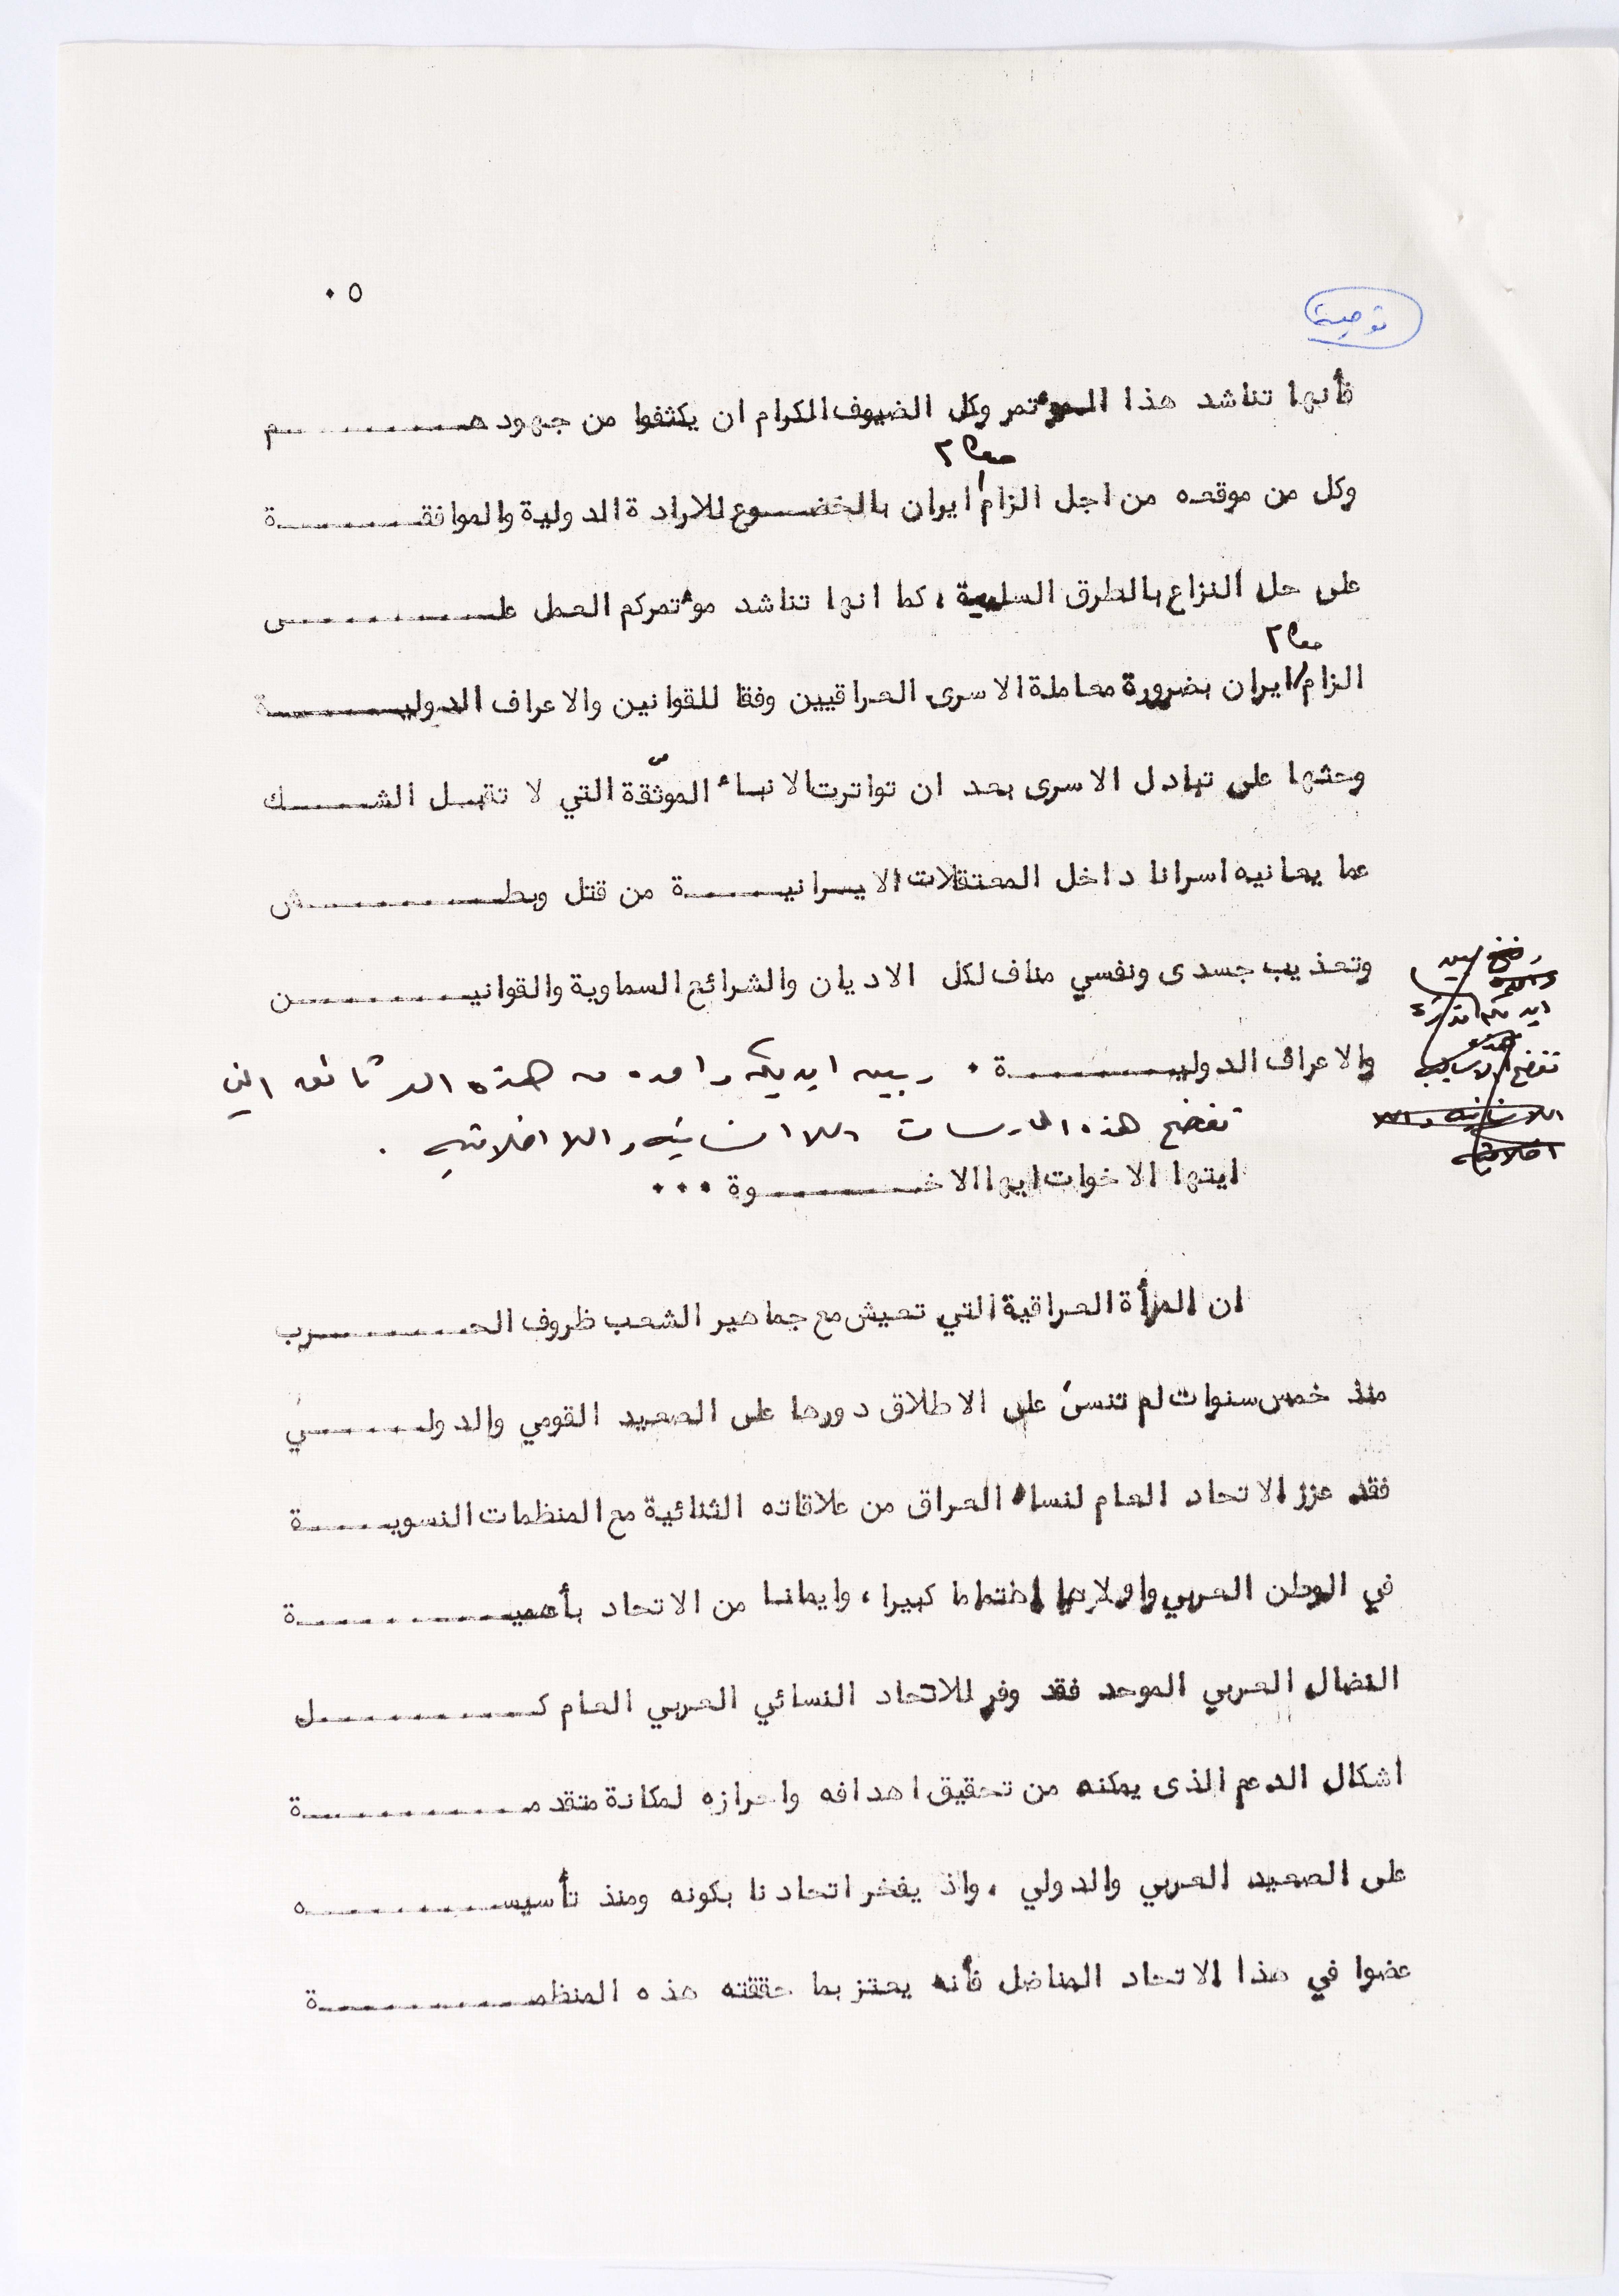 ٥ .
توصية
فأنها تناشد هذا المؤتمر وكل الضيوف الكرام ان يكثفوا من جهودهم
وكل من موقعه من اجل الزام ايران بالخضوع للارادة الدولية والموافقة
على حل النزاع بالطرق السلمية ، كما انها تناشد مؤتمركم العمل على
الزام ايران بضرورة معاملة الاسرى العراقيين وفقا للقوانين والاعراف الدولية
وحثها على تبادل الاسرى بعد ان تواترت الانباء الموثقة التي لا تقبل الشك
عما يعانيه اسرانا داخل المعتقلات الايرانية من قتل وبطش
وتعذيب جسدى ونفسي مناف لكل الاديان والشرائع السماوية والقوانين
والاعراف الدولية . وبين ايديكم واحدة من هذه الوثائق التي
تفضح هذه الممارسات اللاانسانية واللااخلاقية .
ايتها الاخوات ايها الاخوة ...
ان المرأة العراقية التي تعيش مع جماهير الشعب ظروف الحرب
منذ خمس سنوات لم تنس على الاطلاق دورها على الصعيد القومي والدولي
فقد عزز الاتحاد العام لنساء العراق من علاقاته الثنائية مع المنظمات النسوية
في الوطن العربي واولاها اهتماما كبيرا ، وايمانا من الاتحاد بأهمية
النضال العربي الموحد فقد وفر للاتحاد النسائي العربي العام كل
اشكال الدعم الذى يمكنه من تحقيق اهدافه واحرازه لمكانة متقدمة
على الصعيد العربي والدولي ، واذ يفخر اتحادنا بكونه ومنذ تأسيسه
عضوا في هذا الاتحاد المناضل فأنه يعتز بما حققته هذه المنظمة